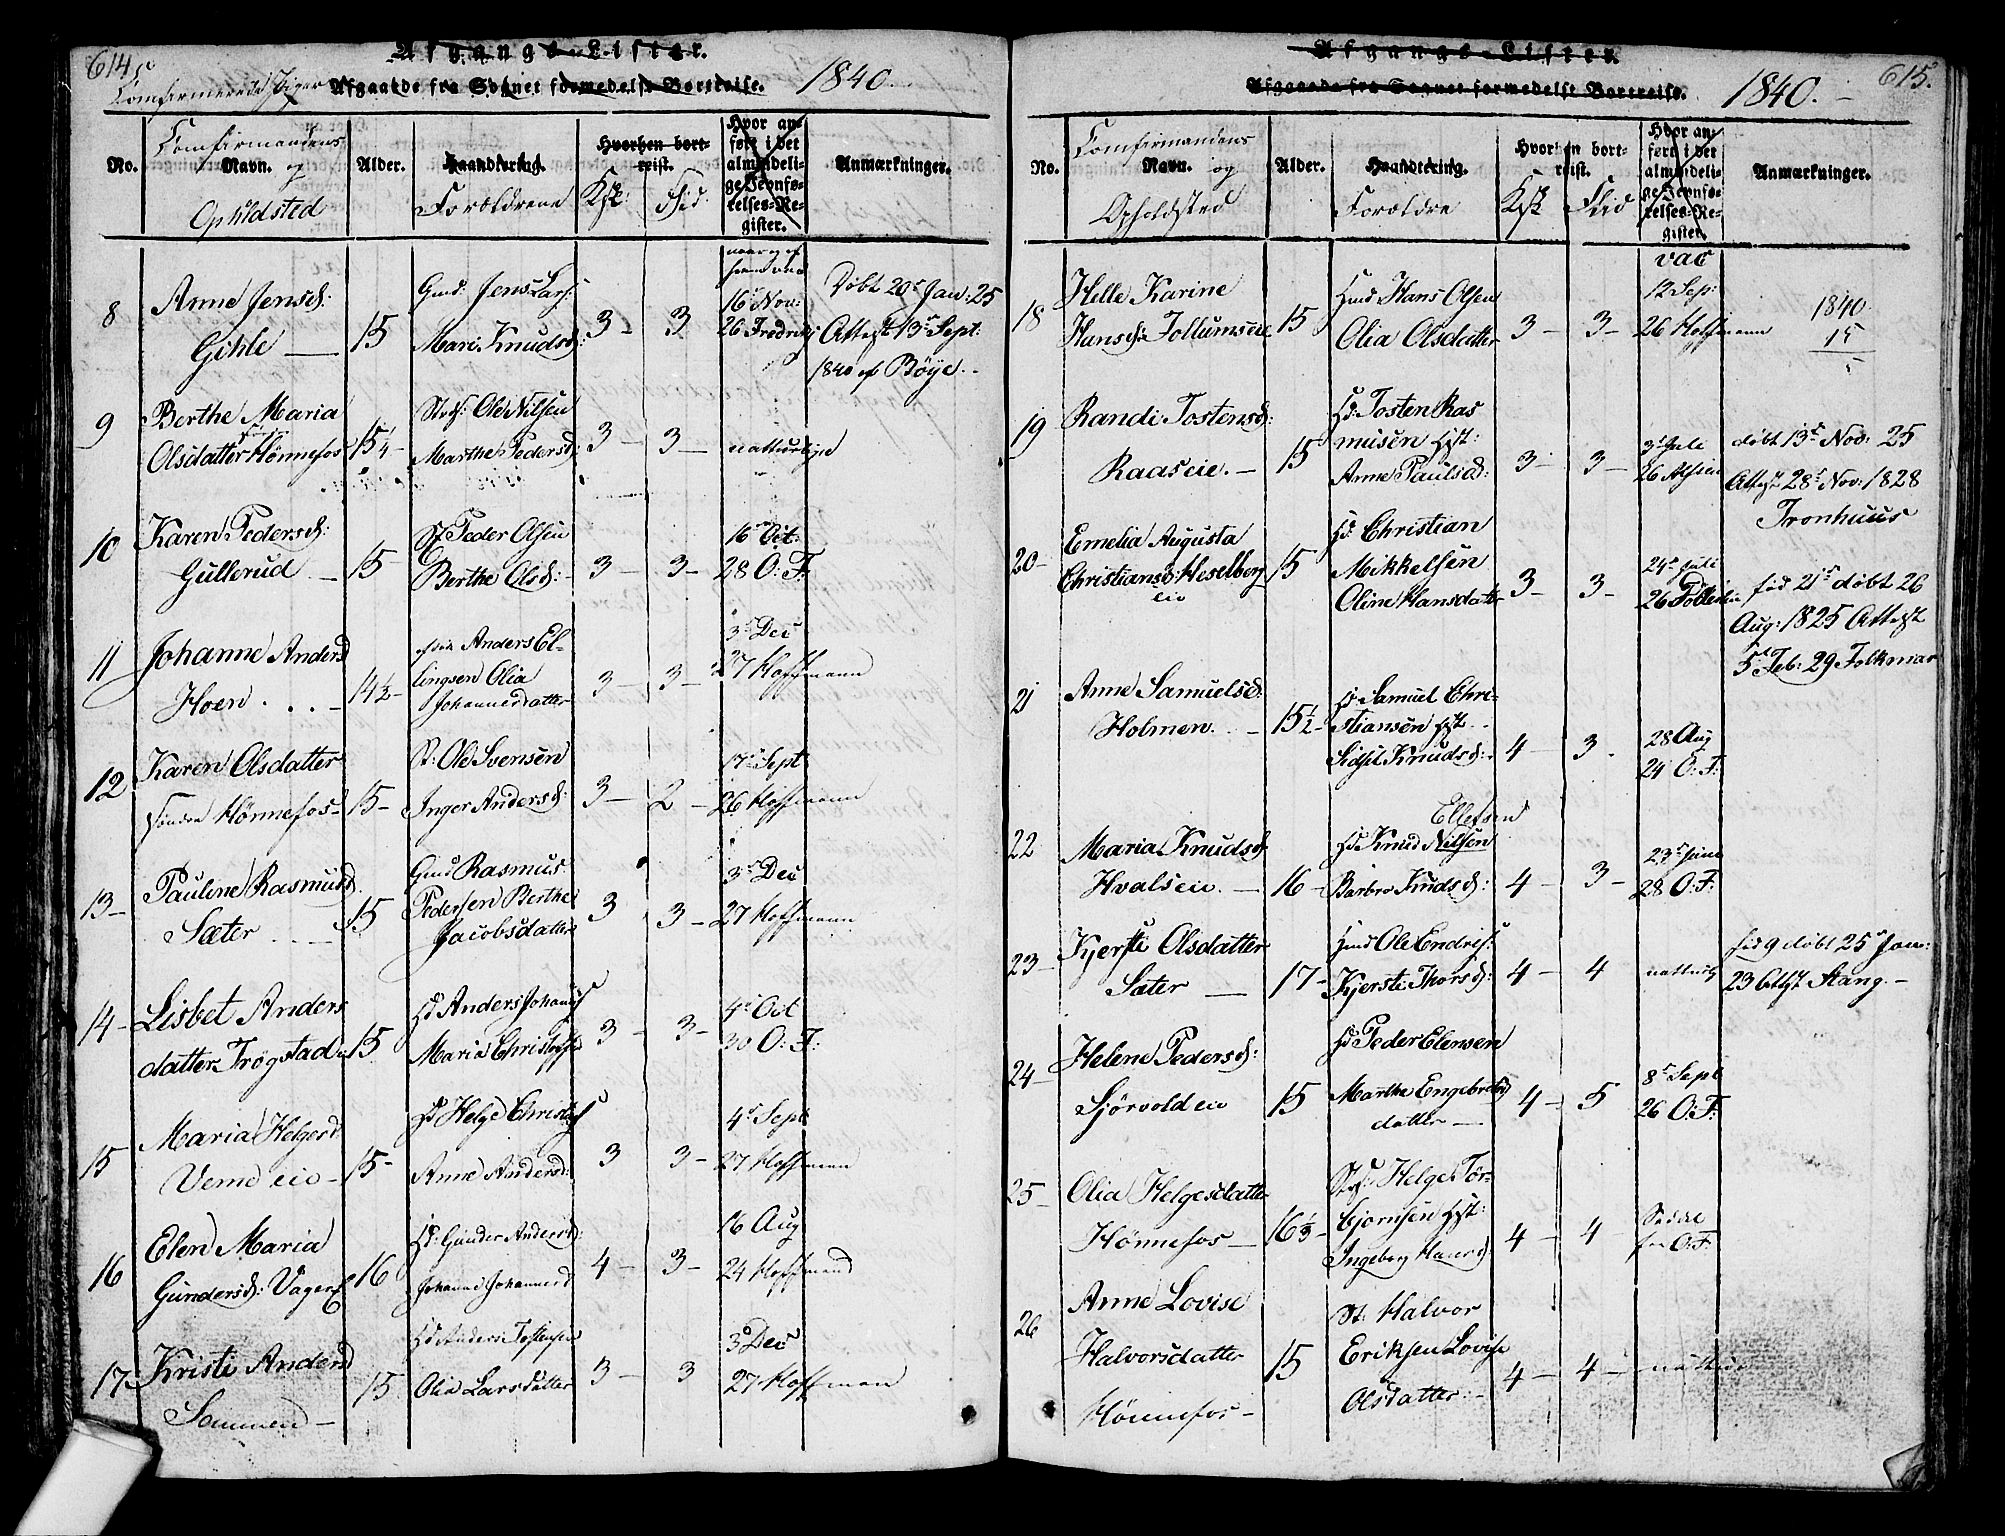 614
Afgangs-Lister.
Comfirmerede Piger Afgaaede fra Sognet formedelst Bortreise. 1840.
No.
Comfirmandens
Navn.
og
Opholdsted
Alder.
Haandtering.
Forældrene
Hvorhen bort-
reist.
Kşk:
Flid:
Hvor an-
ført i det
almindeli-
ge Jevnfø-
relses-Re-
gister.
Anmærkninger.
8
Anne Jensd:
Gihle
15
Gmd: Jens Lars:
Mari Knudsd:
3 -
3
16 Nov:
26 Fredriks
Døbt 20 Jan: 25
Attest 13 Sept:
1840 af Böye
9
Berthe Maria
Olsdatter Hønnefos
15 1/4
Ole Nilsen
Marthe Pedersd:
3 -
3 -
natturlige
10
Karen Pedersd:
Gullerud
15
Peder Olsen
Berthe Olsd:
3 -
3 -
16 Oct:
28 O: F:
11
Johanne Andersd
Hoen
14 1/2
Anders El-
lingsen Olia
Johannesdatter
3 -
3 -
3 Dec
27 Hoffmann
12
Karen Olsdatter
Hønnefos
15 -
St: Ole Svensen
Inger Andersd:
3 -
2 -
17 Sept
26 Hoffmann
13
Pauline Rasmusd
Sæter
15
Gmd Rasmus
Pedersen Berthe
Jacobsdatter
3
3 -
3 Dec
27 Hoffmann
14
Lisbet Anders
datter Trøgstad
15
Hd Anders Johans
Maria Christoffd
3 -
3 -
4 Oct
30 O: F:
15
Maria Helgesd
Veme eie
15 -
Hd Helge Christ
Anne Andersd:
3
3 -
4 Sept
27 Hoffmann
16
Elen Maria
Gundersd: Vager
16
Hd: Gunder Andersd:
Johanne Johannesd
4 -
3 -
16 Aug
24 Hoffmand
17
Kristi Andersd
Sommen
15
Hd Anders Tostensen
Olia Larsdatter
3 -
3
3 Dec
27 Hoffman
615.
Afgangs-Lister.
Afgaaede fra Sognet formedelst Bortreise. 1840.
No.
Comfirmandens
Navn.
og
Opholdsted
Alder.
Haandtering.
Forældre
Hvorhen bort-
reist.
Kşk
Flid
Hvor an-
ført i det
almindeli-
ge Jevnfø-
relses-Re-
gister.
Anmærkninger.
18
Helle Karine
Hansd: Tollumseie
15
Hmd Hans Olsen
Olia Olsdatter
3 -
3 -
vac
12 Sep:
26 Hoffmann
1840
15
19
Randi Tostensd:
Raaseie.
15
Hd: Tosten Ras
musen Hst:
Anne Paulsd:
3 -
3 -
3 Jule
26
døbt 13 Nov: 25
Attest 28 Nov: 1828
Tronhuus
20
Emelia Augusta
Christiansd: Heselberg
eie
15
Hd: Christian
Mikkelsen
Oline Hansdater
3 -
3 -
24 Jule
26
fød 21 døbt 26
Aug: 1825 Attest
5 Feb: 29 Folkmar
21
Anne Samuelsd:
Holmen
15 1/2
Hd Samuel Chri-
stiansen Hst
Sidsil Knudsd:
4 -
3 -
28 Aug
24 O: F:
22
Maria Knudsd
Hvalseie
16 -
Ellefsen
Hd Knud Nilsen
Barbro Knudsd:
4 -
3 -
23 June
28 O: F:
23
Kjersti Olsdatter
Sæter
17 -
Hmd Ole Endris:
Kjersti Thorsd:
4 -
4
natturlig
fød 9 døbt 25 Jan:
23 Attest Stang.
24
Helene Pedersd:
Sjörvold eie
15
Hd Peder Elensen
Marthe Engebrets
datter
4 -
5
8 Sept
26 O: F:
25
Olia Helgesdatter
Hønnefos
16 1/3
Helge Tor-
bjornsen Hst:
Ingeborg Hansd
4 -
4 -
O: F:
26
Anne Lovise
Halvorsdatter
Hønnefos
15
St: Halvor
Eriksen Lovise
Olsdatter
4 -
4 -